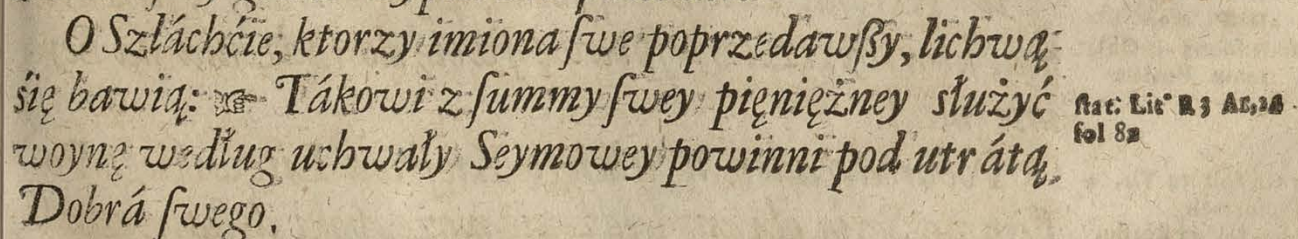 O Szláchćie, ktorzy imiona ſwe poprzedawſzy, lichwą
śię bawią: ☞ Tákowi z ſummy ſwey pięniężney służyć
woynę według uchwały Seymowey powinni pod utrátą
Dobrá ſwego.
ſtat: Lit: R 3 Ar,
fol 82